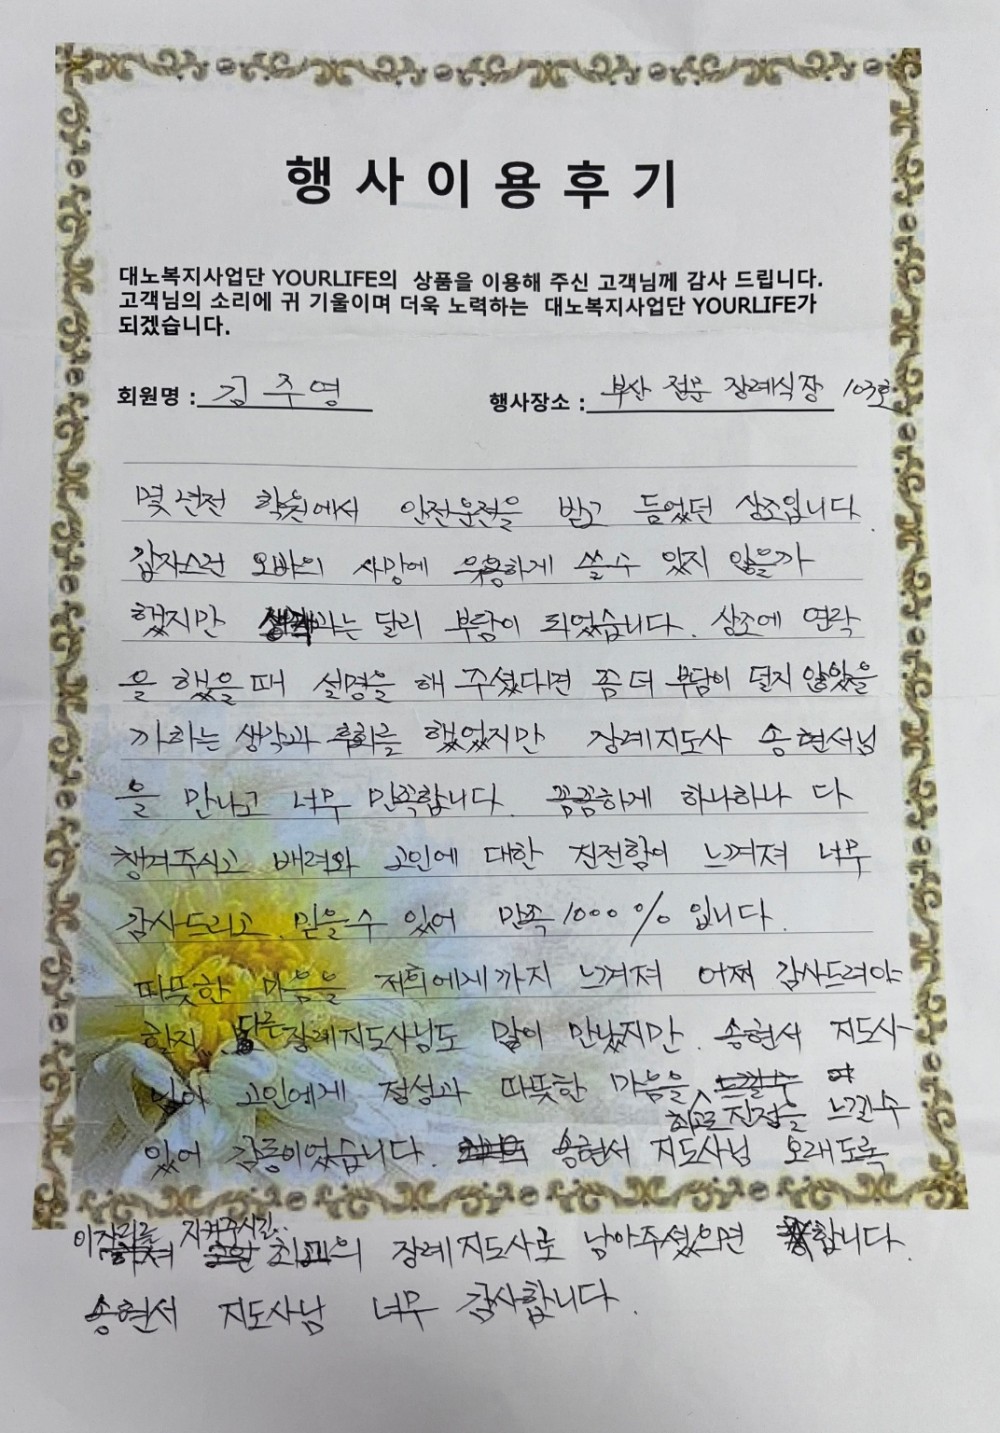 행사이용후기
대노복지사업단 YOURLIFE의 상품을 이용해 주신 고객님께 감사 드립니다.
고객님의 소리에 귀 기울이며 더욱 노력하는 대노복지사업단 YOURLIFE가
되겠습니다.
회원명 : 김주영 행사장소 : 부산 전문 장례식장 103호
몇년전 학원에서 안전운전을 받고 들었던 상조입니다.
갑자스런 오빠의 사망에 유용하게 쓸수 있지 않을까
했지만 생각과는 달리 부담이 되었습니다. 상조에 연락
을 했을때 설명을 해 주셨다면 좀 더 부담이 덜지 않았을
까하는 생각과 후회를 했었지만 장례지도사 송현서님
을 만나고 너무 만족합니다. 꼼꼼하게 하나하나 다
챙겨주시고 배려와 고인에 대한 친전함이 느껴져 너무
감사드리고 믿을수 있어 만족 1000 % 입니다.
따뜻한 마음을 저희에게까지 느껴져 어찌 감사드려야
할지. 다른 장례지도사님도 많이 만났지만. 송현서 지도사
님이 고인에게 정성과 따뜻한 마음을
최고로 진정을 느낄수
있어 감동이었습니다. 송현서 지도사님 오래도록
이자리를 지켜주시길..
최고의 장례지도사로 남아주셨으면 합니다.
송현서 지도사님 너무 감사합니다.